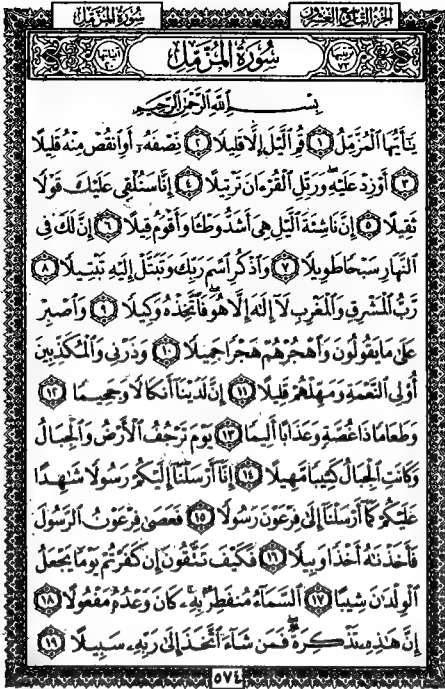 سورة المزمل
الجزء التاسع والعشرون
سُورَةُ المُزَّمِّلِ
بِسْمِ اللَّهِ الرَّحْمَٰنِ الرَّحِيمِ
يَٰٓأَيُّهَا الْمُزَّمِّلُ ١ قُمِ الَّيْلَ إِلَّا قَلِيلًا ٢ نِّصْفَهُۥٓ أَوِ انقُصْ مِنْهُ قَلِيلًا
٣ أَوْ زِدْ عَلَيْهِ وَرَتِّلِ الْقُرْءَانَ تَرْتِيلًا ٤ إِنَّا سَنُلْقِى عَلَيْكَ قَوْلًا
ثَقِيلًا ٥ إِنَّ نَاشِئَةَ الَّيْلِ هِىَ أَشَدُّ وَطْـًٔا وَأَقْوَمُ قِيلًا ٦ إِنَّ لَكَ فِى
النَّهَارِ سَبْحًا طَوِيلًا ٧ وَاذْكُرِ اسْمَ رَبِّكَ وَتَبَتَّلْ إِلَيْهِ تَبْتِيلًا ٨
رَّبُّ الْمَشْرِقِ وَالْمَغْرِبِ لَآ إِلَٰهَ إِلَّا هُوَ فَاتَّخِذْهُ وَكِيلًا ٩ وَاصْبِرْ
عَلَىٰ مَا يَقُولُونَ وَاهْجُرْهُمْ هَجْرًا جَمِيلًا ١٠ وَذَرْنِى وَالْمُكَذِّبِينَ
أُو۟لِى النَّعْمَةِ وَمَهِّلْهُمْ قَلِيلًا ١١ إِنَّ لَدَيْنَآ أَنكَالًا وَجَحِيمًا ١٢
وَطَعَامًا ذَا غُصَّةٍ وَعَذَابًا أَلِيمًا ١٣ يَوْمَ تَرْجُفُ الْأَرْضُ وَالْجِبَالُ
وَكَانَتِ الْجِبَالُ كَثِيبًا مَّهِيلًا ١٤ إِنَّآ أَرْسَلْنَآ إِلَيْكُمْ رَسُولًا شَٰهِدًا
عَلَيْكُمْ كَمَآ أَرْسَلْنَآ إِلَىٰ فِرْعَوْنَ رَسُولًا ١٥ فَعَصَىٰ فِرْعَوْنُ الرَّسُولَ
فَأَخَذْنَٰهُ أَخْذًا وَبِيلًا ١٦ فَكَيْفَ تَتَّقُونَ إِن كَفَرْتُمْ يَوْمًا يَجْعَلُ
الْوِلْدَٰنَ شِيبًا ١٧ السَّمَآءُ مُنفَطِرٌۢ بِهِۦ كَانَ وَعْدُهُۥ مَفْعُولًا ١٨
إِنَّ هَٰذِهِۦ تَذْكِرَةٌ فَمَن شَآءَ اتَّخَذَ إِلَىٰ رَبِّهِۦ سَبِيلًا ١٩
٥٧٤